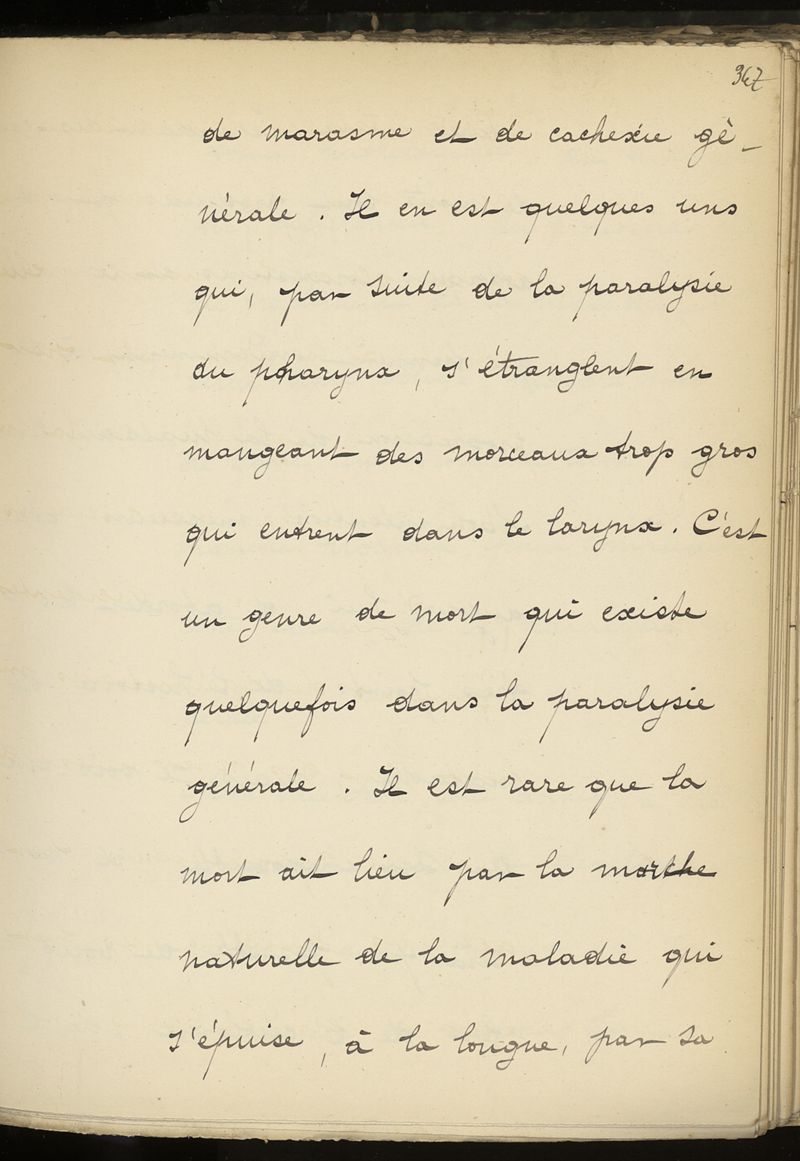 367
de marasme et de cachexie gé-
nérale. Il en est quelques uns
qui, par suite de la paralysie
du pharynx, s'étranglent en
mangeant des morceaux trop gros
qui entrent dans le larynx. C'est
un genre de mort qui existe
quelquefois dans la paralysie
générale. Il est rare que la
mort ait lieu par la marche
naturelle de la maladie qui
s'épuise, à la longue, par sa